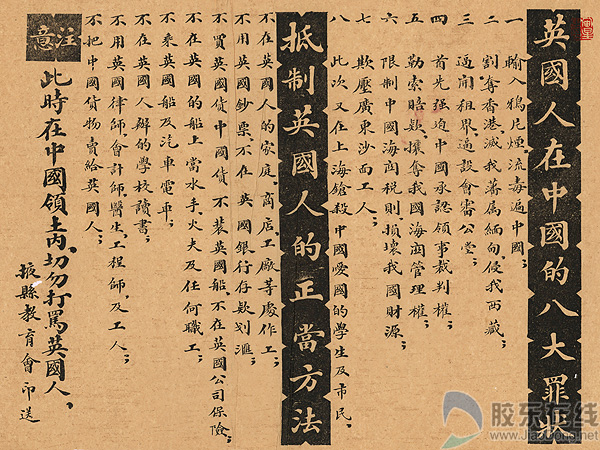 英國人在中國的八大罪狀
一 輸入鴉片煙，流毒遍中國；
二 割奪香港，滅我藩属緬甸，侵我西藏；
三 逼開租界，逼設會審公堂；
四 首先强迫中國承認領事裁判權；
五 勒索賠欵，攘奪我國海関管理權；
六 限制中國海関稅則，損壞我國財源；
七 欺壓廣東沙面工人；
八 此次又在上海鎗殺中國愛國的學生及市民。
抵制英國人的正當方法
不在英國人的家庭、商店、工廠等處作工；
不用英國鈔票不在英國銀行存欵划滙；
不買英國貨中國貨不裝英國船，不在英國公司保險；
不在英國的船上當水手、火夫及任何職工；
不乘英國船及汽車電車；
不在英國人辦的學校讀書；
不用英國律師會計師，醫生，工程師，及工人；
不把中國貨物賣給英國人；
注意
此時在中國領土內，切勿打罵英國人，
掖縣教育會印送
胶东在线
www.JiaoDong.net